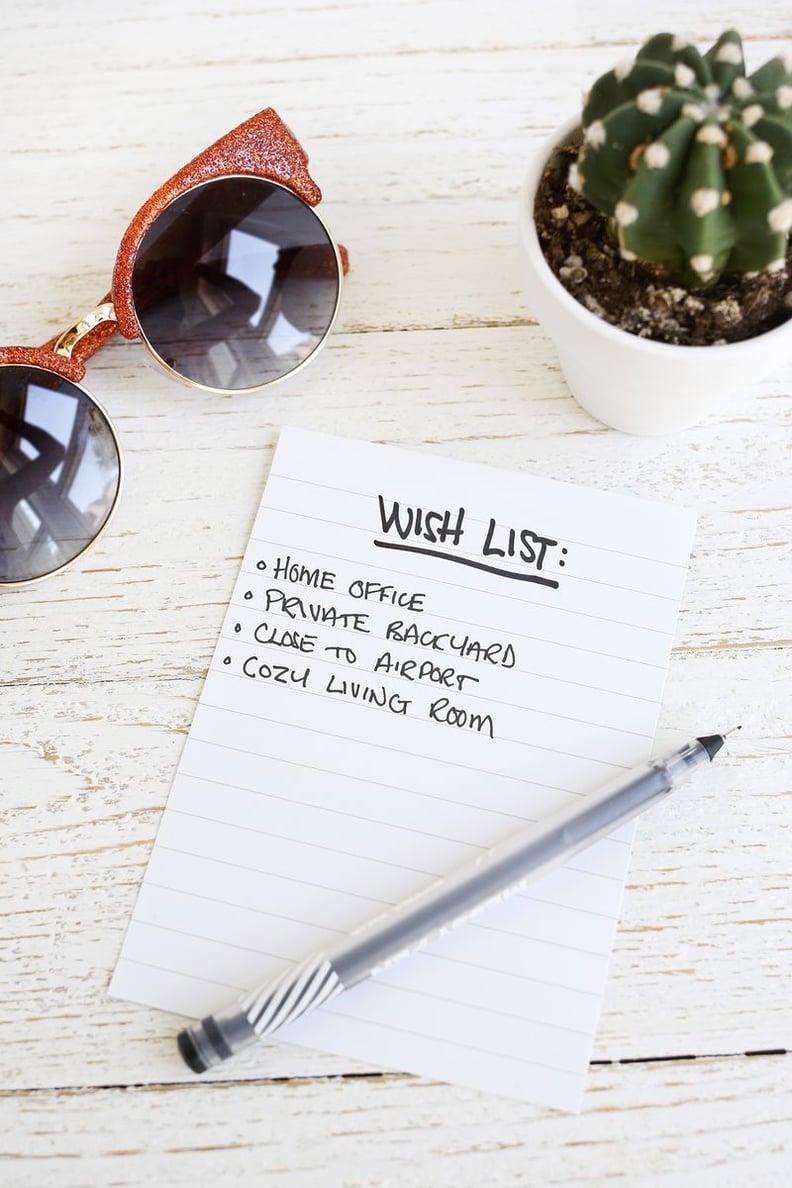 WISH LIST:
• HOME OFFICE
• PRIVATE BACKYARD
• CLOSE TO AIRPORT
• COZY LIVING ROOM